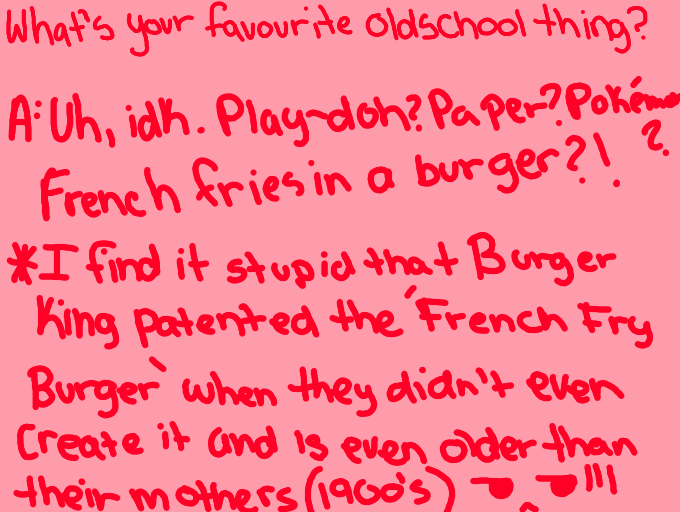 What's your favourite oldschool thing?
A: Uh, idk. Play-doh? Paper? Pokémon?
French fries in a burger?!
*I find it stupid that Burger
King patented the 'French Fry
Burger' when they didn't even
Create it and is even older than
their mothers (1900's)